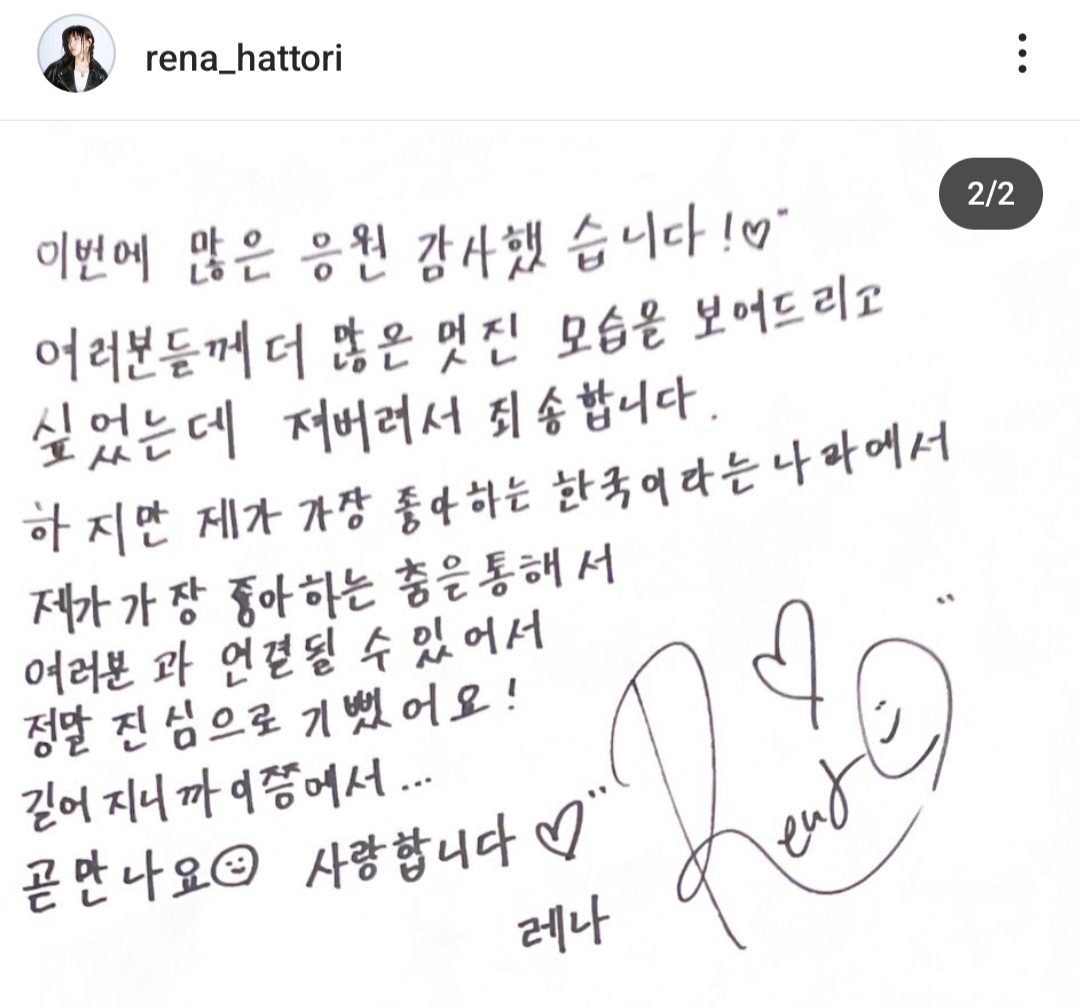 rena_hattori
2/2
이번에 많은 응원 감사했습니다!♡
여러분들께 더 많은 멋진 모습을 보여드리고
싶었는데 져버려서 죄송합니다.
하지만 제가 가장 좋아하는 한국이라는 나라에서
제가 가장 좋아하는 춤을 통해서
여러분과 연결될 수 있어서
정말 진심으로 기뻤어요!
길어지니까 이쯩에서...
곧 만나요☺ 사랑합니다♡
레나
Rena